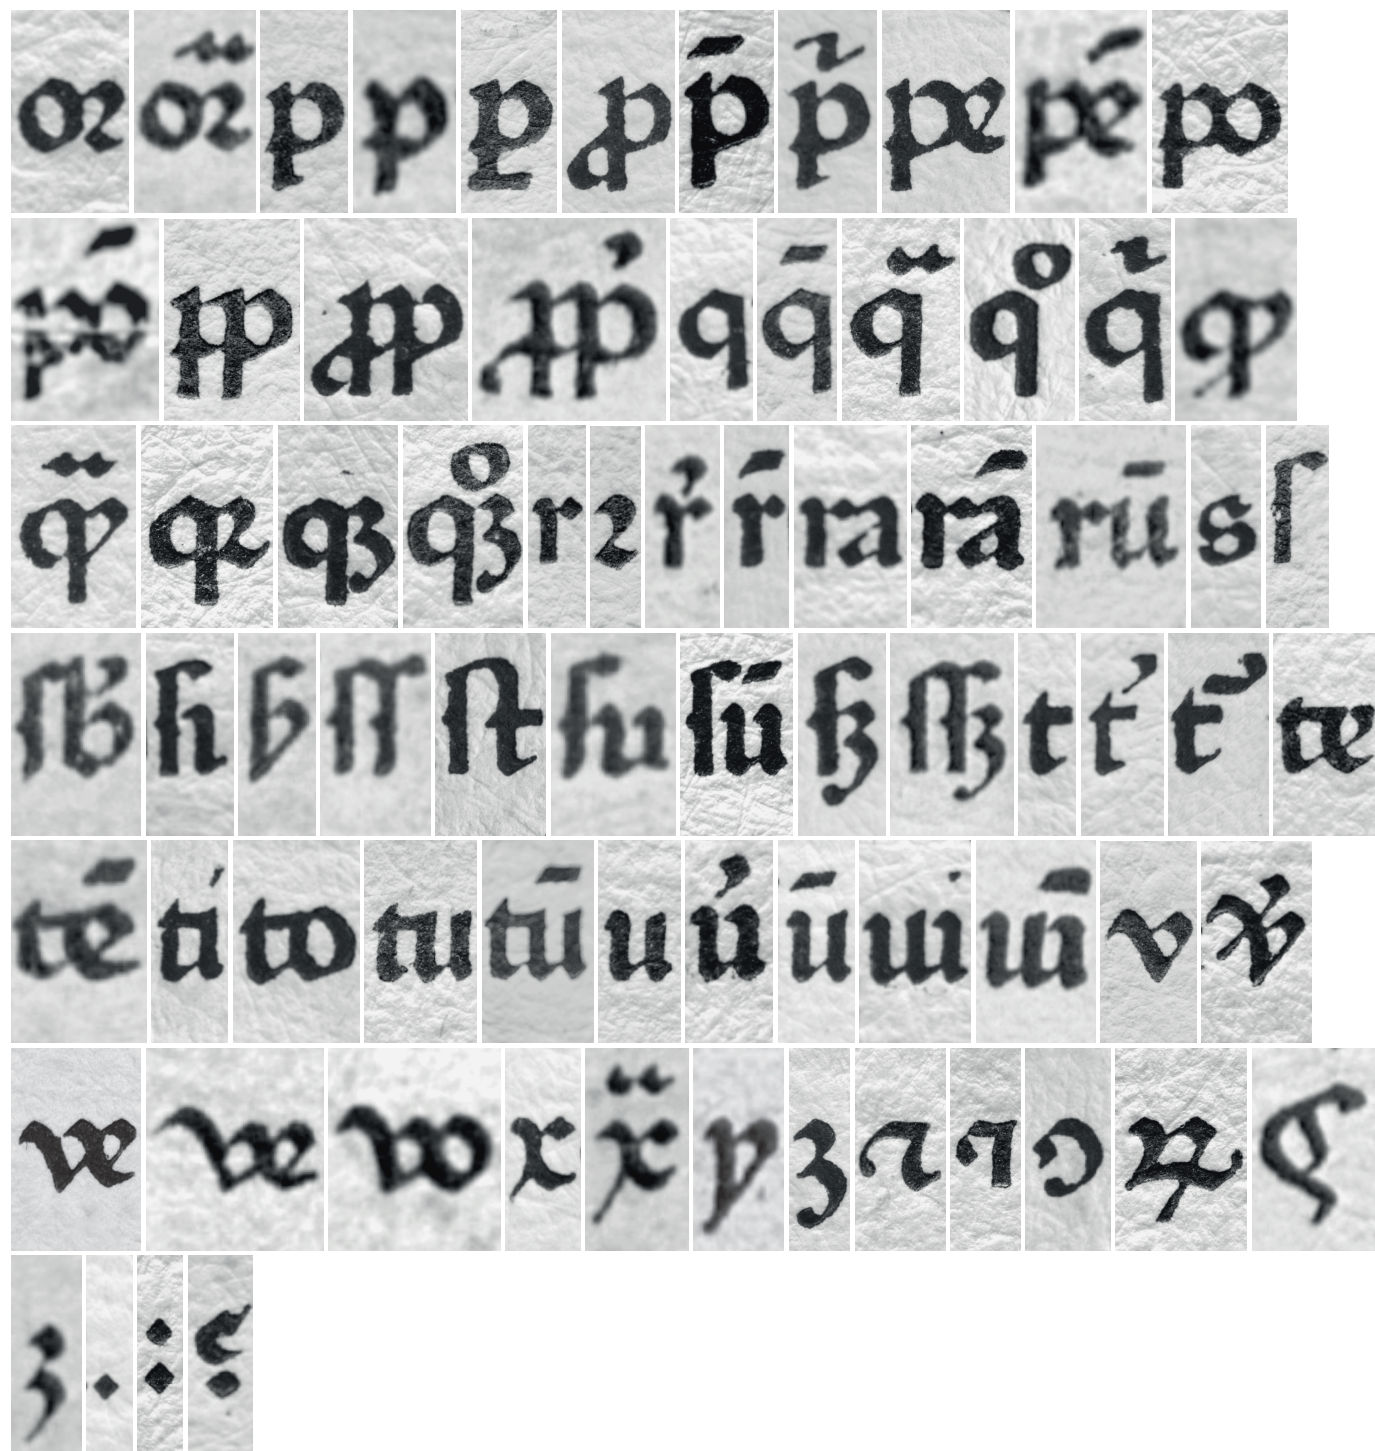 oꝛ oꝛ̈ p p ꝑ ꝓ p̄ p̃ pe pē po
pō pp ꝓp ꝓṕ q q̄ q̈ qͦ q̃ ꝙ
ꝙ̈ qꝛ qꝫ qꝫͦ r ꝛ ŕ r̄ ra rā rū s ſ
ſb ſi ẜ ſſ ſt ſu ſū ſꝫ ſſꝫ t t́ t̄ te
tē ti to tu tū u ú ū ui ūi v v́
ve we wo x ẍ y ꝫ ꝛ ꝛ ꝯ ꝝ ς
; . : ⸵